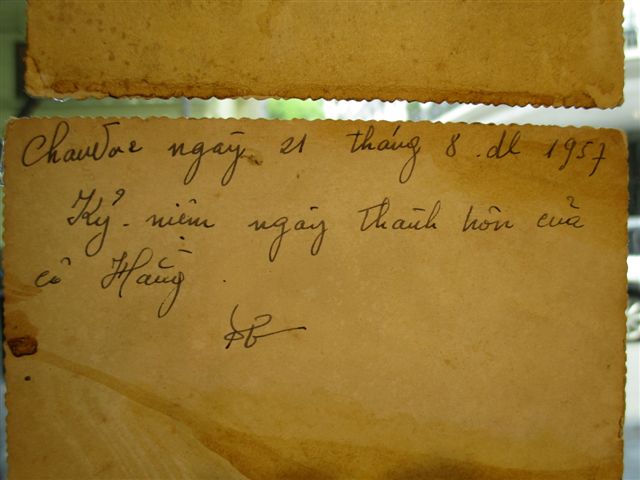 Chauđoc ngày 21 tháng 8. dl 1957
Kỷ-niệm ngày thành hôn của
cô Hằng.